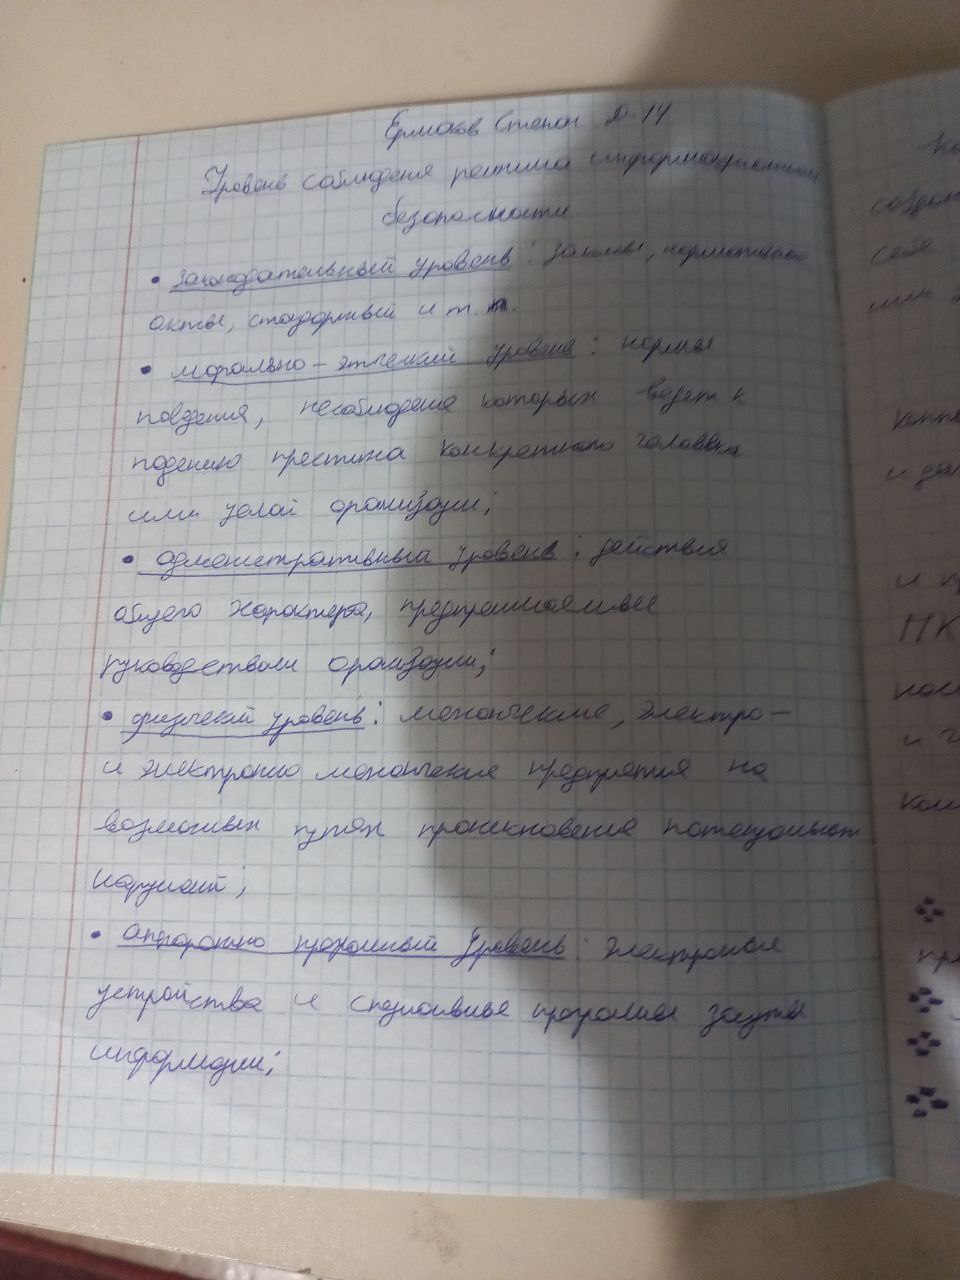 Ермаков Степан Д-14
Уровень соблюденя режима информационной
безопасности
• законодательный уровень: законы, нормативные
акты, стандартный и т.п.
• морально-этический уровень: нормы
поведения, несоблюдение которых ведет к
падению престижа конкретного человека
или целой организации;
• административный уровень: действия
общего характера, предпринимаемые
руководством организации;
• физический уровень: механические, электро-
и электронно механические предпрятия на
возможных путях проникновения потенциальных
нарушит;
• аппаратно програмный уровень: электронные
устройства и специальные программы защиты
информации;
ПК